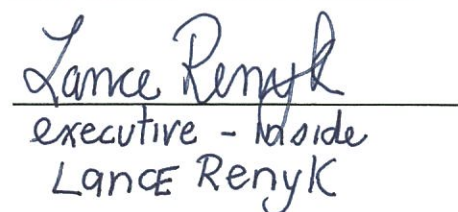 Lance Renyk
executive -
Lance Renyk